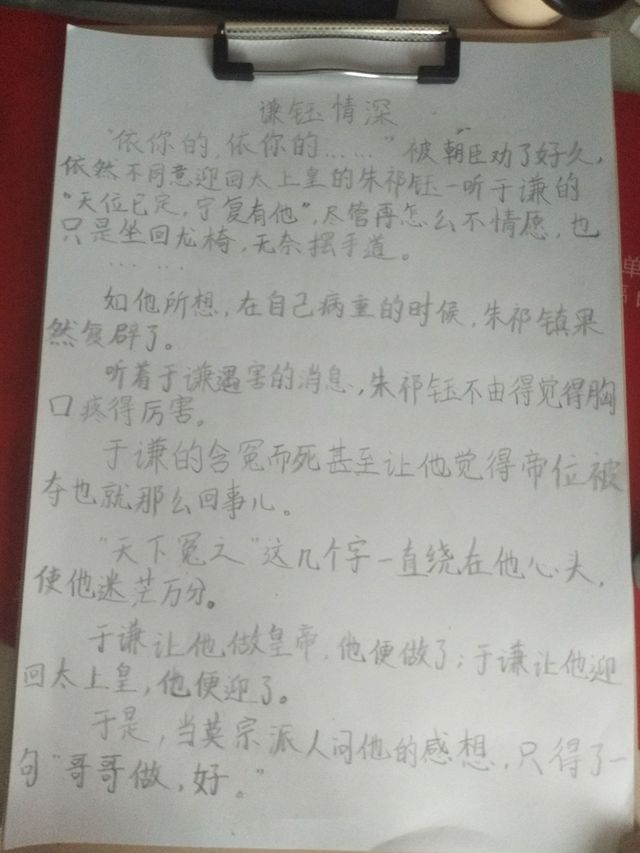 谦钰情深
"依你的,依你的……"被朝臣劝了好久,
依然不同意迎回太上皇的朱祁钰一听于谦的
"天位已定,宁复有他",尽管再怎么不情愿,也
只是坐回龙椅,无奈摆手道。
……
如他所想,在自己病重的时候,朱祁镇果
然复辟了。
听着于谦遇害的消息,朱祁钰不由得觉得胸
口疼得厉害。
于谦的含冤而死甚至让他觉得帝位被
夺也就那么回事儿。
"天下冤之"这几个字一直绕在他心头,
使他迷茫万分。
于谦让他做皇帝,他便做了;于谦让他迎
回太上皇,他便迎了。
于是,当英宗派人问他的感想,只得了一
句"哥哥做,好。"
单